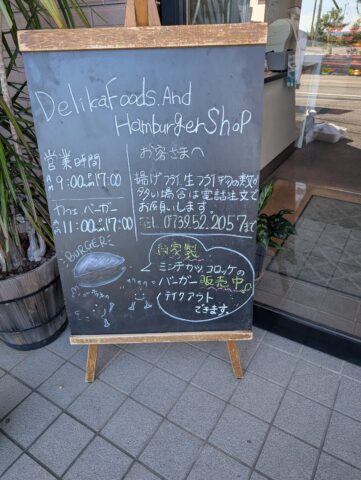 Delika Foods. And
Hamburger Shop
営業時間
AM 9:00〜PM 17:00
The バーガー
AM 11:00〜PM 17:00
BURGER
お客さまへ
揚げフライ生フライ物の数が
多い場合は電話注文で
お願いします。
Tel. 0739.52.2057まで
自家製
ミンチカツ、コロッケの
バーガー販売中。
テイクアウト
できます。